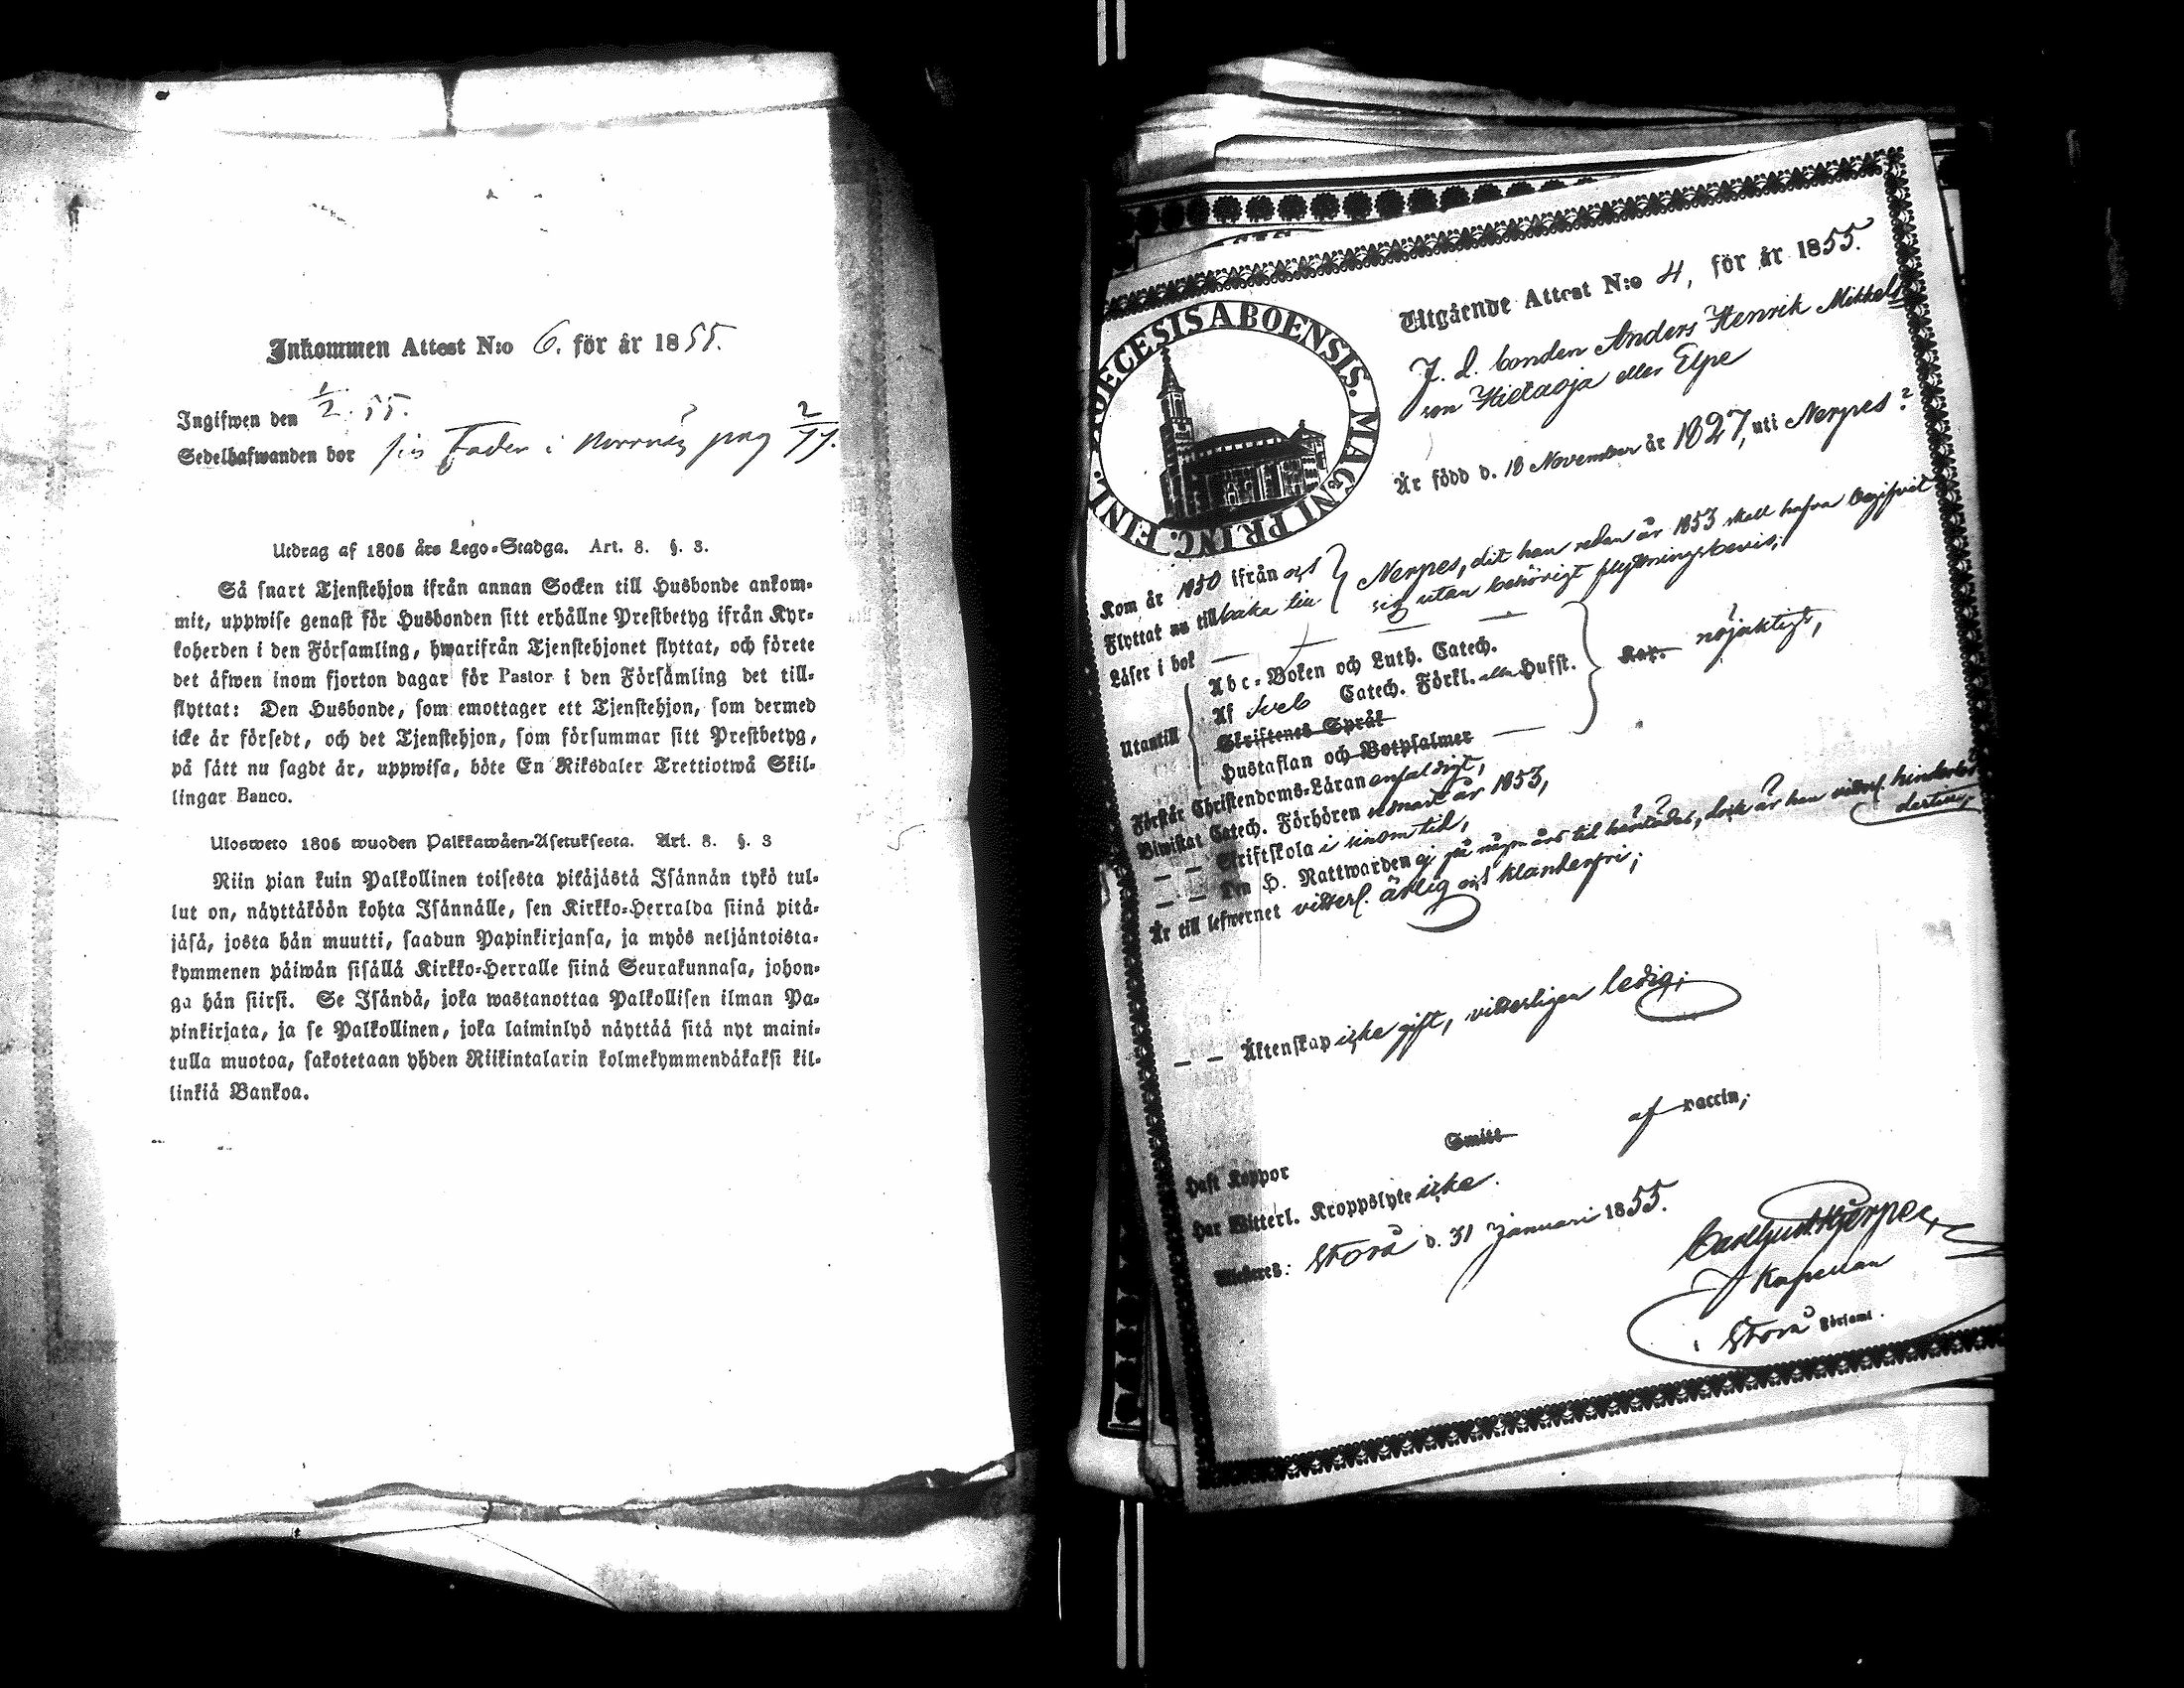 Inkommen Attest N:o 6. för år 1855.
Ingifwen den 1/2. 55.
Sedelhafwanden bor Fader i Norrnäs pag 2/77.
Utdrag af 1805 års Lego-Stadga. Art. 8. §. 3.
Så snart Tjenstehjon ifrån annan Socken till Husbonde ankom-
mit, uppwise genast för Husbonden sitt erhållne Prestbetyg ifrån Kyr-
koherden i den Församling, hwarifrån Tjenstehjonet flyttat, och förete
det äfwen inom fjorton dagar för Pastor i den Församling det till-
flyttat: Den Husbonde, som emottager ett Tjenstehjon, som dermed
icke är försedt, och det Tjenstehjon, som försummar sitt Prestbetyg,
på sätt nu sagdt är, uppwisa, böte En Riksdaler Trettiotwå Skil-
lingar Banco.
Ulosweto 1805 wuoden Palkkawäen-Asetuksesta. Art. 8. §. 3
Niin pian kuin Palkollinen toisesta pitäjästä Isännän tykö tul-
lut on, näyttäköön kohta Isännälle, sen Kirkko-Herralda siinä pitä-
jäsä, josta hän muutti, saadun Papinkirjansa, ja myös neljäntoista-
kymmenen päiwän sisällä Kirkko-Herralle siinä Seurakunnasa, johon-
ga hän siirsi. Se Isändä, joka wastanottaa Palkollisen ilman Pa-
pinkirjata, ja se Palkollinen, joka laiminlyö näyttää sitä nyt maini-
tulla muotoa, sakotetaan yhden Riikintalarin kolmekymmendäkaksi kil-
linkiä Bankoa.
DIOECESIS ABOENSIS. MAGNI PRINC. FINL.
Utgående Attest N:o 4, för år 1855.
J. d. bonden Anders Henrik Mikkels
son Hietaoja eller Elpe
Är född d. 18 November år 1827, uti Nerpes?
Kom år 1850 ifrån och
Flyttat nu tillbaka till } Nerpes, dit han redan år 1853 skall hafva begifvit
sig utan behörigt flyttningsbevis;
Läser i bok
Utantill
Abc-Boken och Luth. Catech.
Af Sveb Catech. Förkl. Hufst.
Skriftenes Språk
Hustaflan och Botpsalmer
Kap. nöjaktigt,
Förstår Christendoms-Läran enfaldigt,
Biwistat Catech. Förhören senast år 1853,
— — Skriftskola i sinom tid,
— — Den H. Nattwarden ej på några års tid härstädes, dock är han vitterl. hinderlös
dertill,
Är till lefwernet vitterl. ärlig och klanderfri;
— — Äktenskap icke gift, vitterligen ledig;
Haft Koppor Smitt af vaccin;
Har Witterl. Kroppslyte icke.
Attesteras: Storå d. 31 Januari 1855.
Carl Gust. Hjerpe,
Kapellan
i Storå Församl.